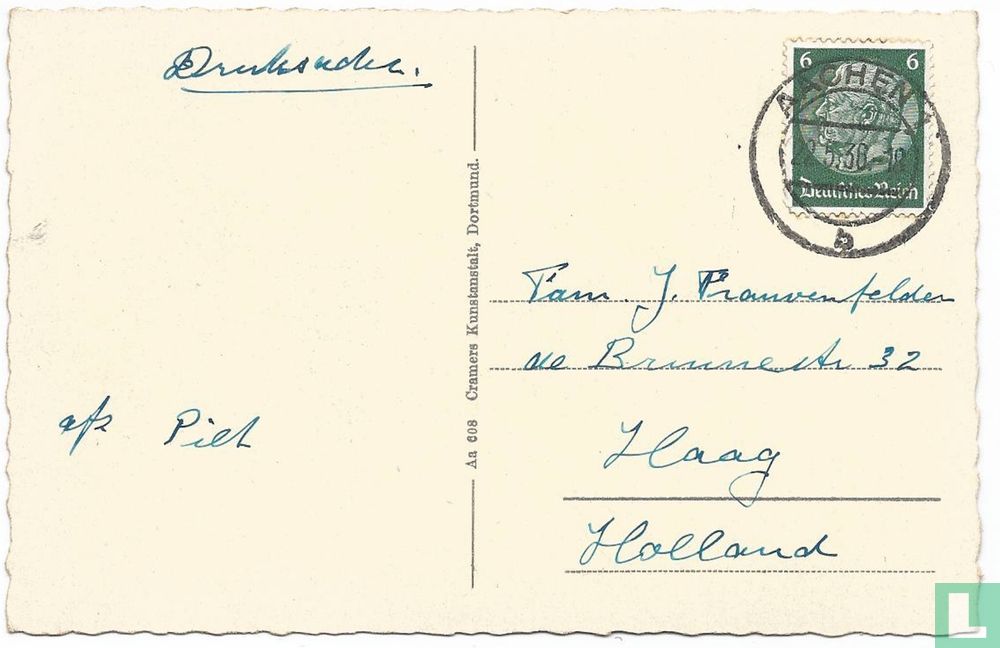 Drucksache.
6 6
AACHEN 1
5.36.-18
Deutsches Reich
b
Aa 608 Cramers Kunstanstalt, Dortmund.
Fam. J. Frauvenfelder
de Brunestr 32
Haag
Holland
afz Piet
L